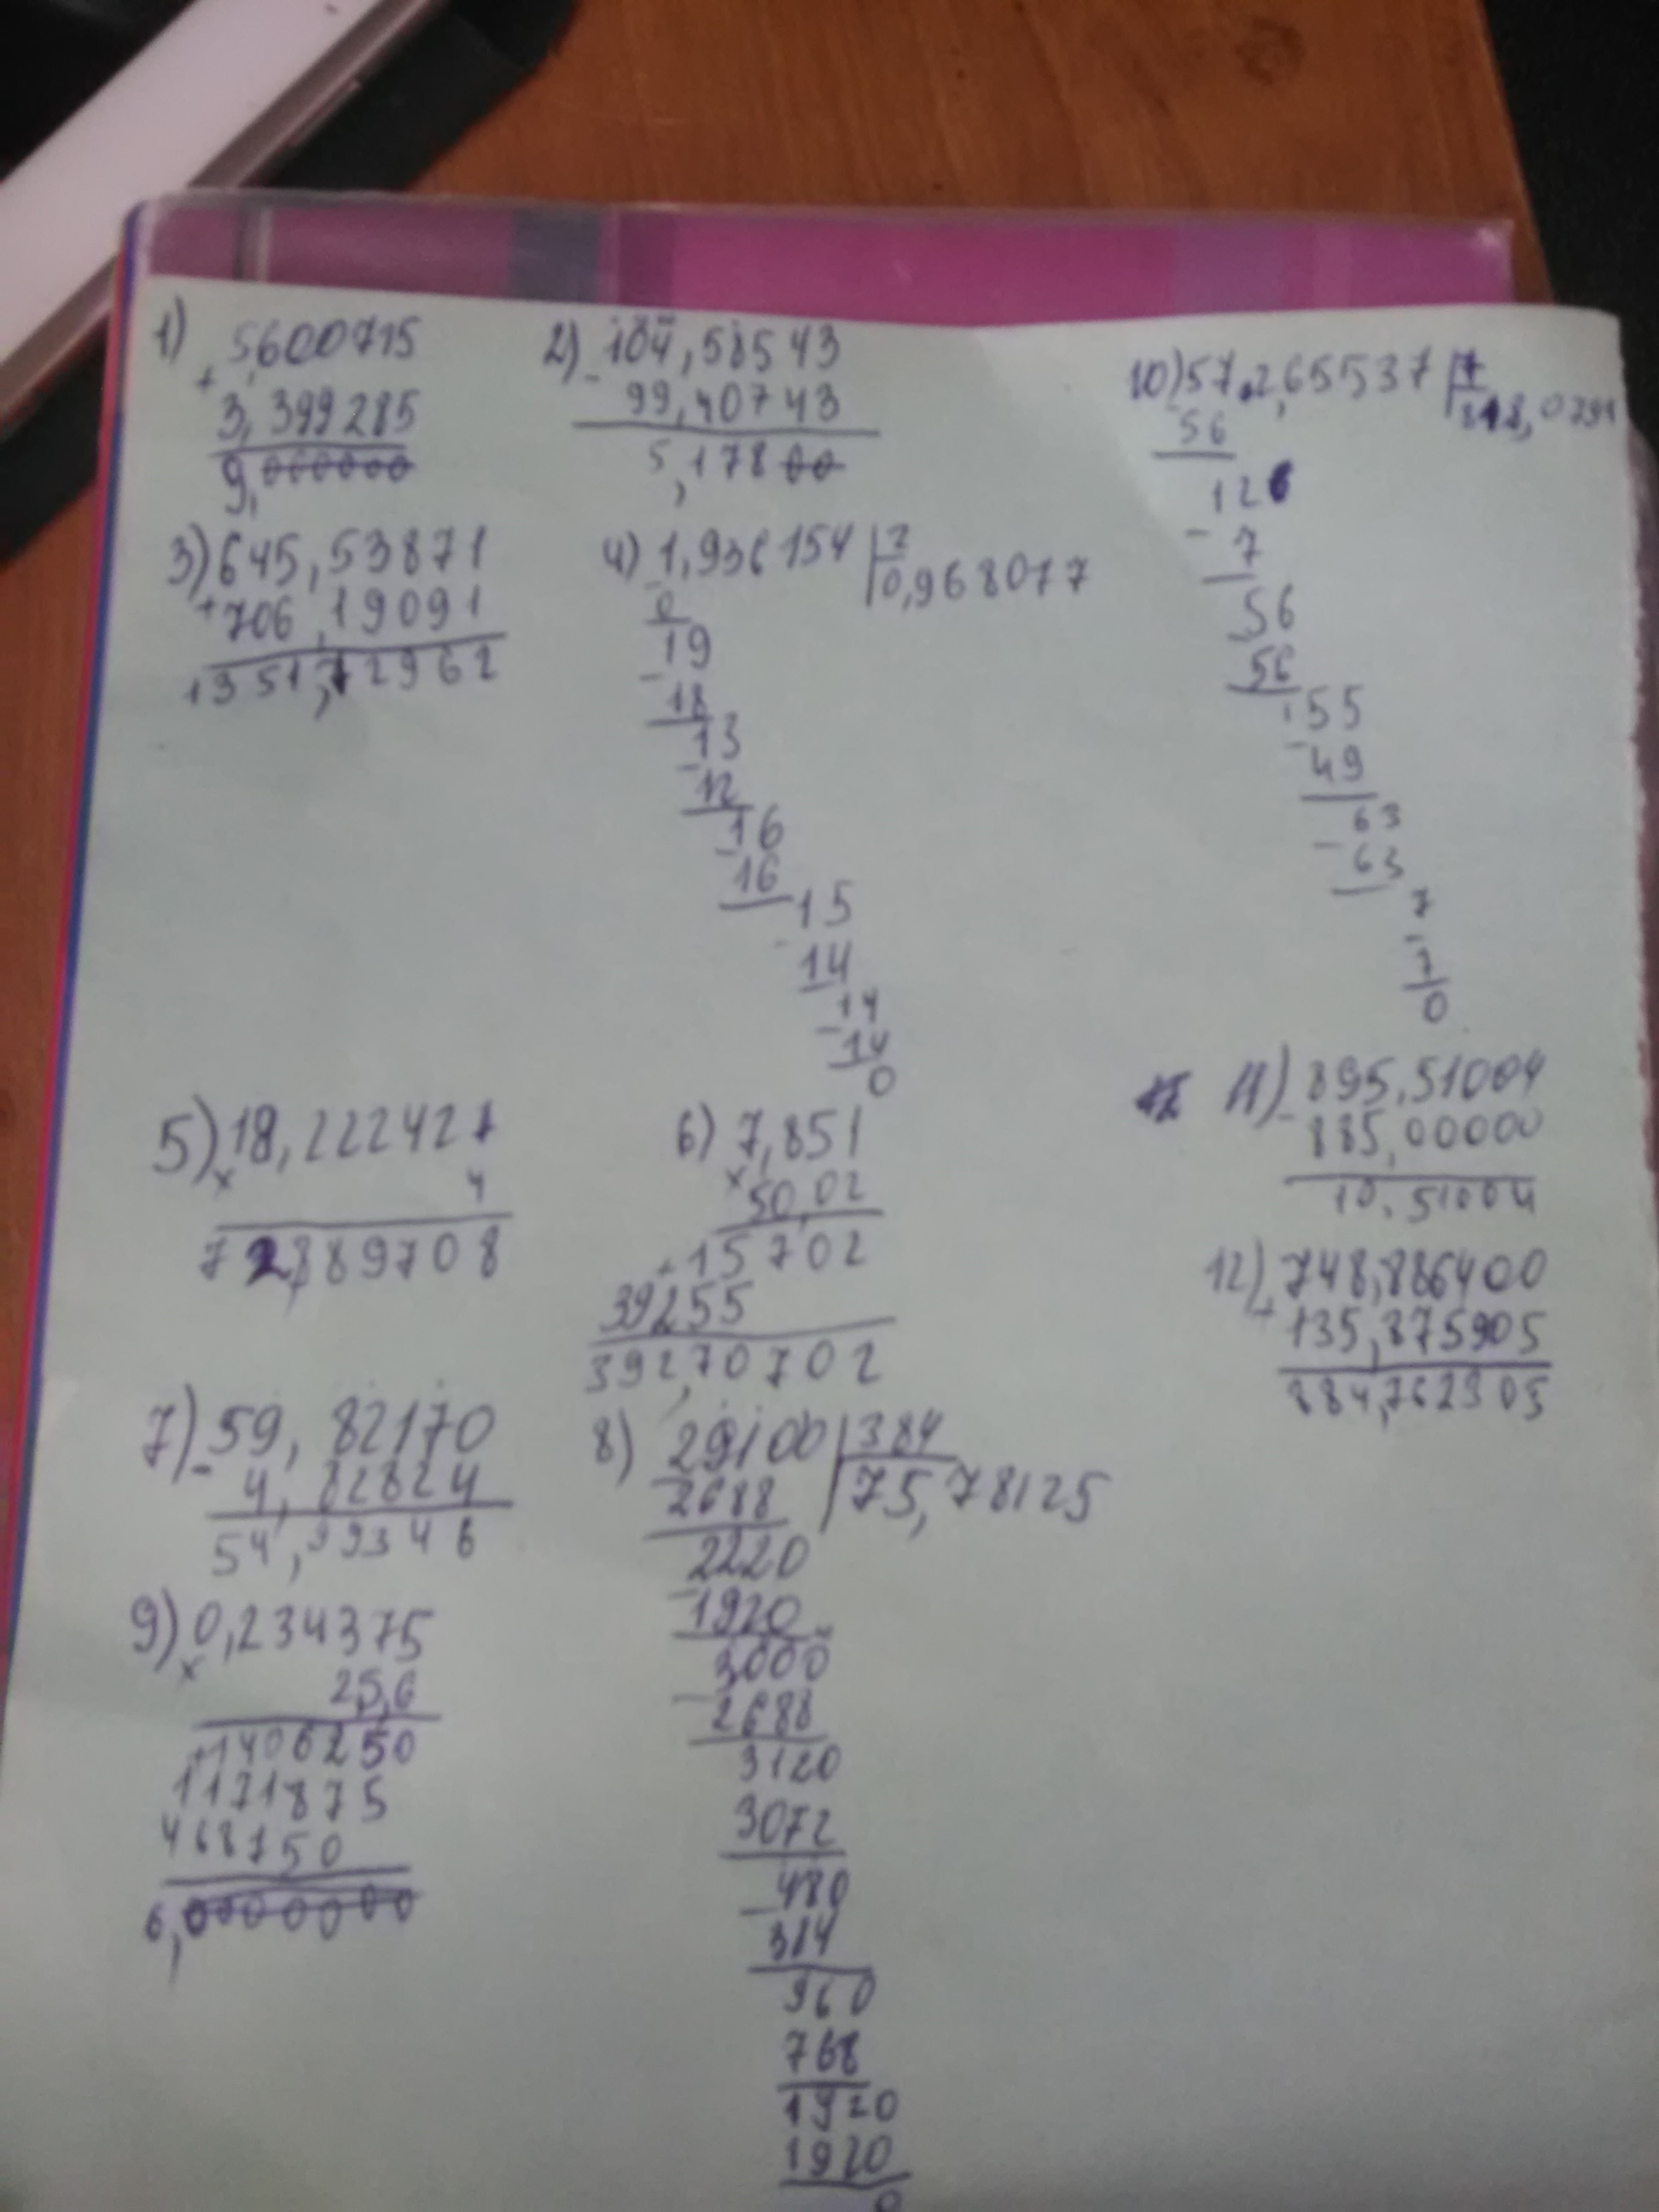 1) 5,600715
+
3,399285
9,000000
2) 104,58543
-
99,40743
5,17800
3) 645,53871
+706,19091
1351,72962
4) 1,936154 | 2
0,968077
0
19
-
18
13
-
12
16
16
15
14
14
-
14
0
5) 18,222427
x
4
72,889708
6) 7,851
x
50,02
+15702
39255
392,70702
7) 59,82170
-
4,82824
54,99346
8) 29100 | 384
75,78125
2688
2220
-
1920
3000
-
2688
3120
3072
480
-
384
960
768
1920
1920
0
9) 0,234375
x
25,6
+1406250
1171875
468750
6,0000000
10) 57,265537 | 7
56
126
-
7
56
56
55
-
49
63
-
63
7
-
7
0
11) 895,51004
-
885,00000
10,51004
12) 748,886400
+
135,875905
884,762305